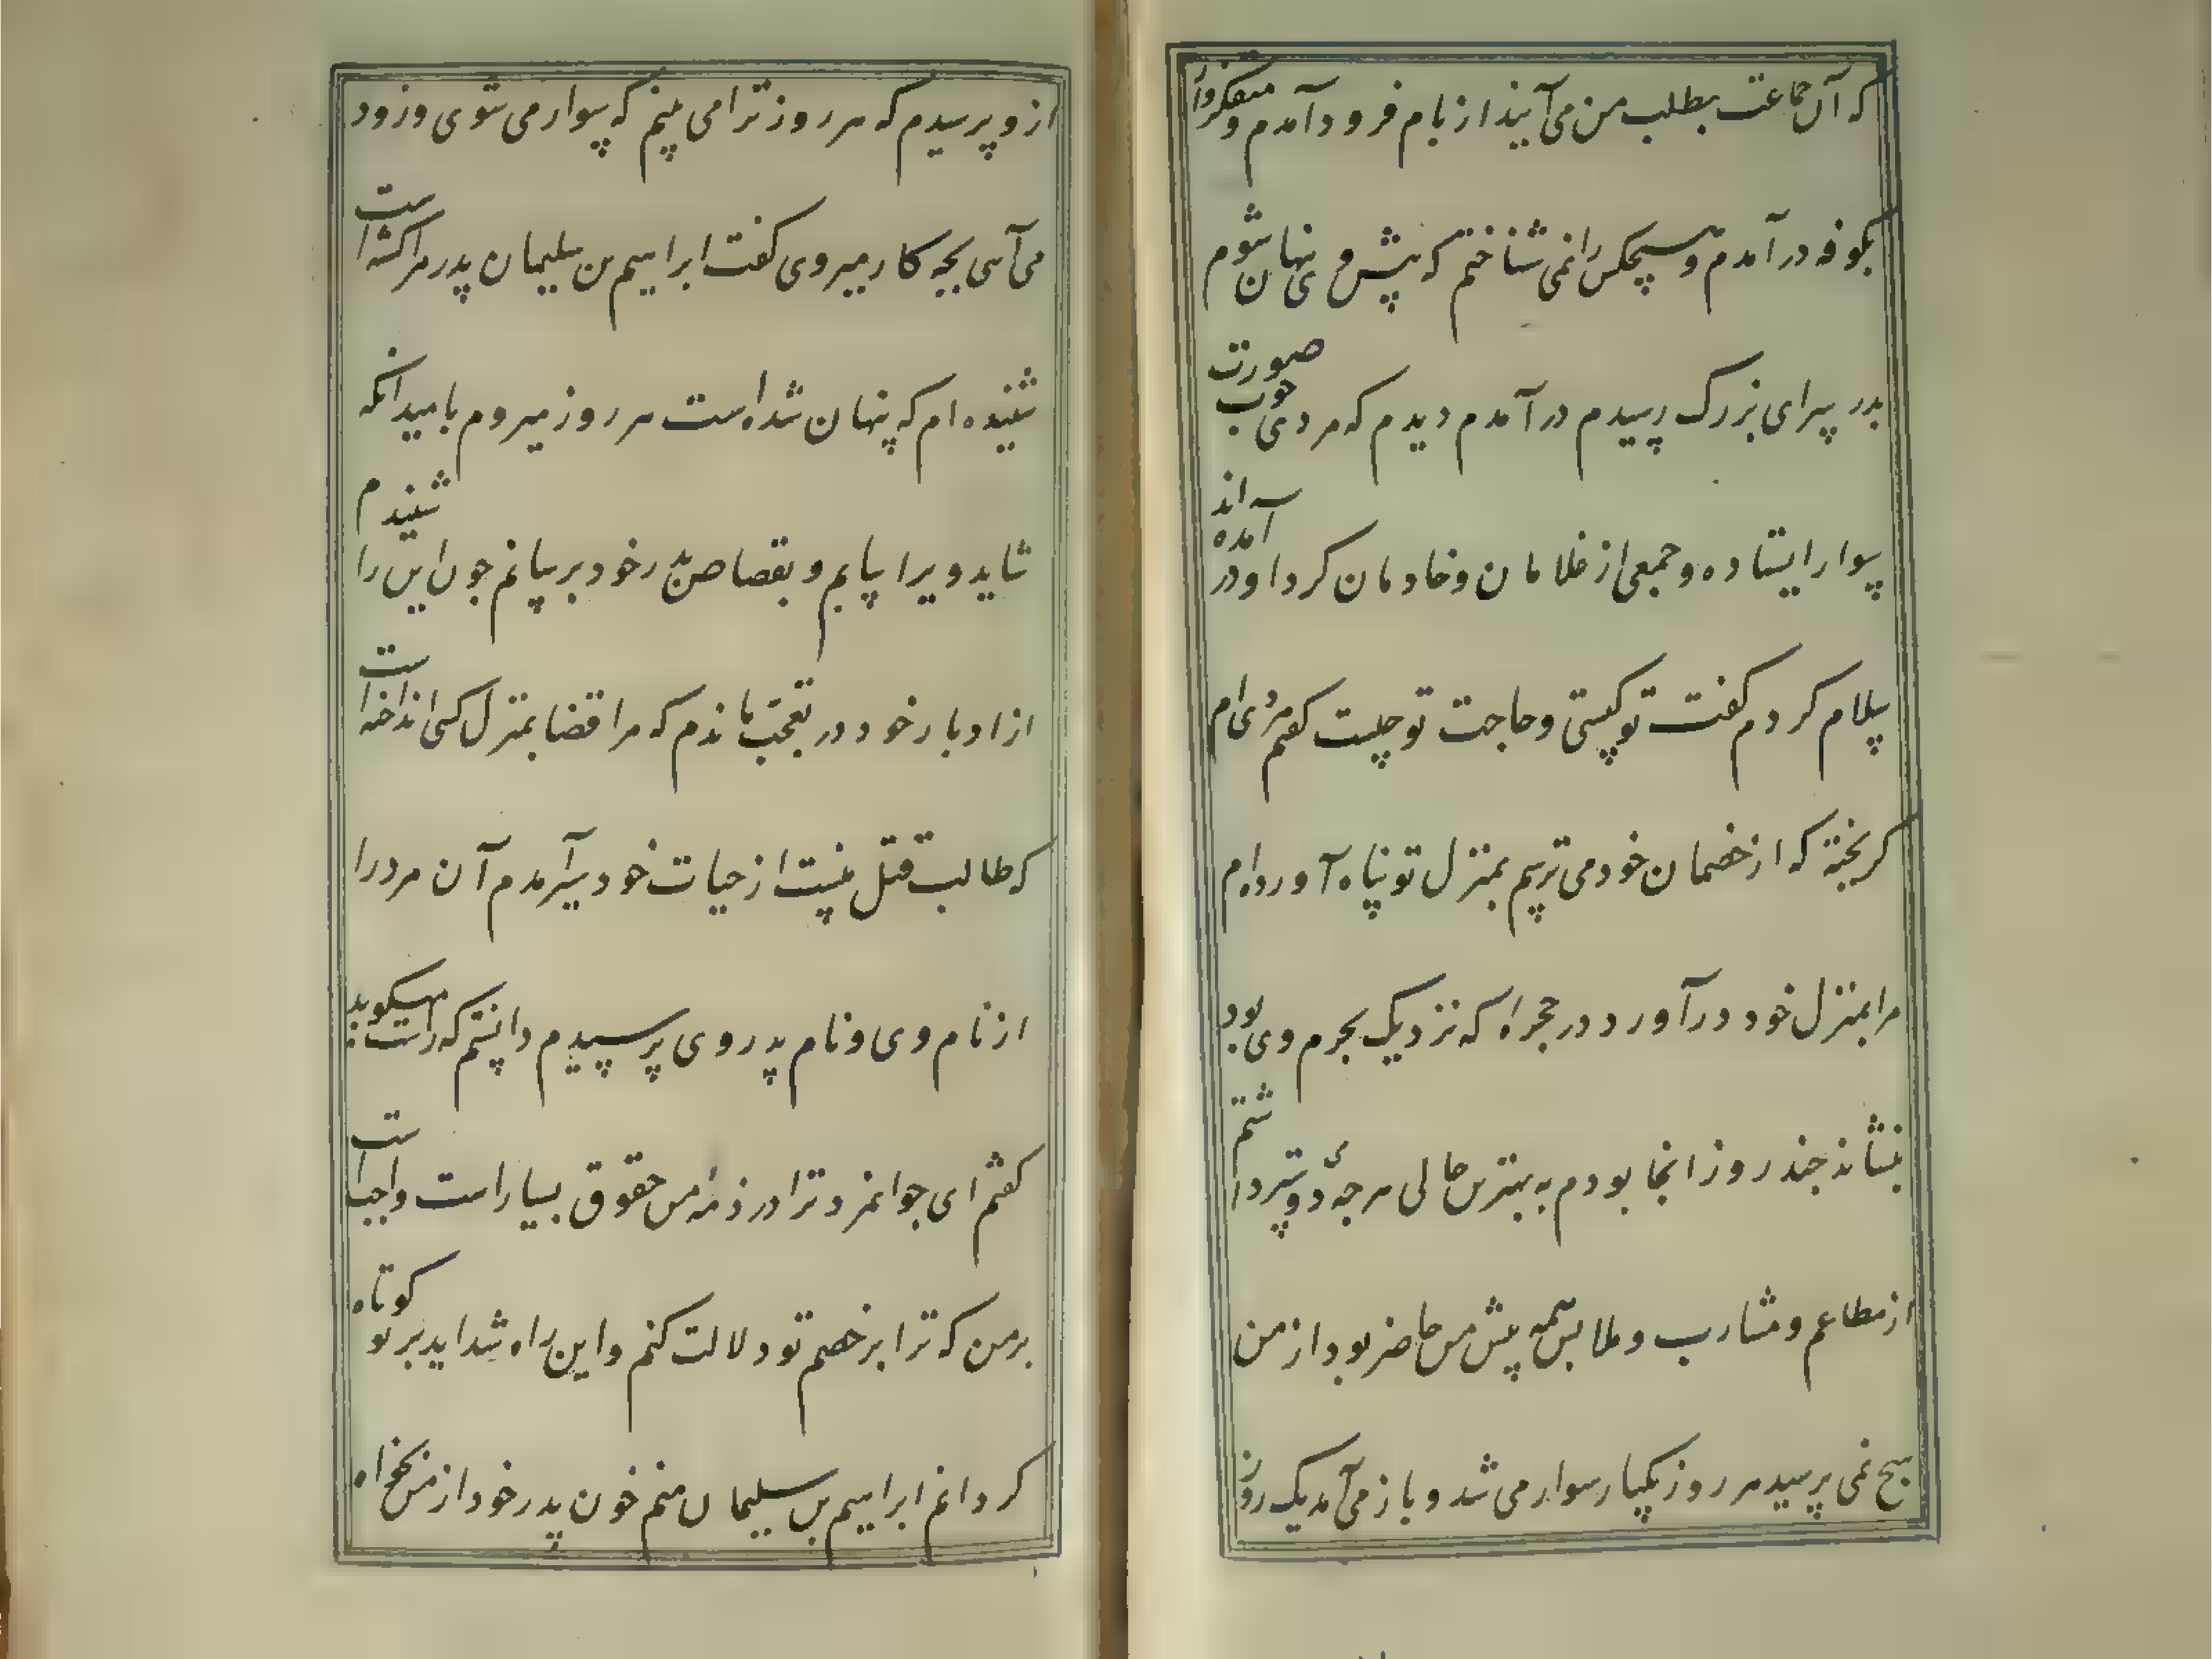 که آن جماعت بطلب من می‌آیند از بام فرود آمدم و متفکروار
بکوفه در آمدم و هیچکس را نمی شناختم که پیش وی پنهان شوم
بدر سرای بزرگ رسیدم در آمدم دیدم که مردی خوب صورت
سوار ایستاده و جمعی از غلامان و خادمان کرد او در آمده اند
سلام کردم کفت تو کیستی و حاجت تو چیست کفتم مردی ام
کریخته که از خصمان خود می ترسم بمنزل تو پناه آورده ام
مرا بمنزل خود در آورد در حجره که نزدیک بحرم وی بود
بنشاند چند روز انجا بودم به بهترین حالی هر چه دوستر داشتم
از مطاعم و مشارب و ملابس همه پیش من حاضر بود از من
هیچ نمی پرسید هر روز یکبار سوار می شد و باز می آمد یک روز
از و پرسیدم که هر روز ترا می بینم که سوار می شوی و زود
می آیی بچه کار میروی کفت ابراهیم بن سلیمان پدر مرا کشته است
شنیده ام که پنهان شده است هر روز میروم بامید انکه
شاید ویرا بیابم و بقصاص پدر خود برسانم چون این را شنیدم
از ادبار خود در تعجب ماندم که مرا قضا بمنزل کسی انداخته است
که طالب قتل منست از حیات خود سیر آمدم آن مرد را
از نام وی و نام پدر وی پرسیدم دانستم که راست میکوید
کفتم ای جوانمرد ترا در ذمه من حقوق بسیار است واجب است
بر من که ترا بر خصم تو دلالت کنم و این راه شداید بر تو کوتاه
کردانم ابراهیم بن سلیمان منم خون پدر خود از من بخواه